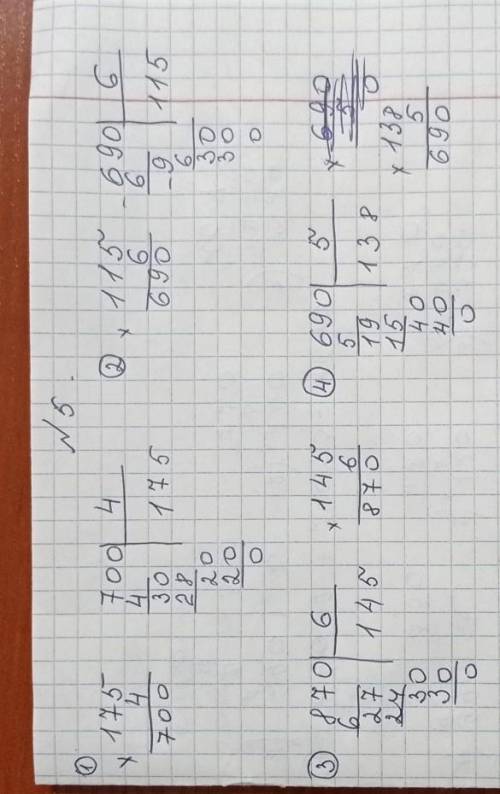 №5.
① × 175
4
700
700 | 4
4 | 175
30
28
20
20
0
② × 115
6
690
- 690 | 6
6 | 115
-9
6
30
30
0
③ 870 | 6
6 | 145
27
24
30
30
0
× 145
6
870
④ 690 | 5
5 | 138
19
15
40
40
0
× 138
5
690